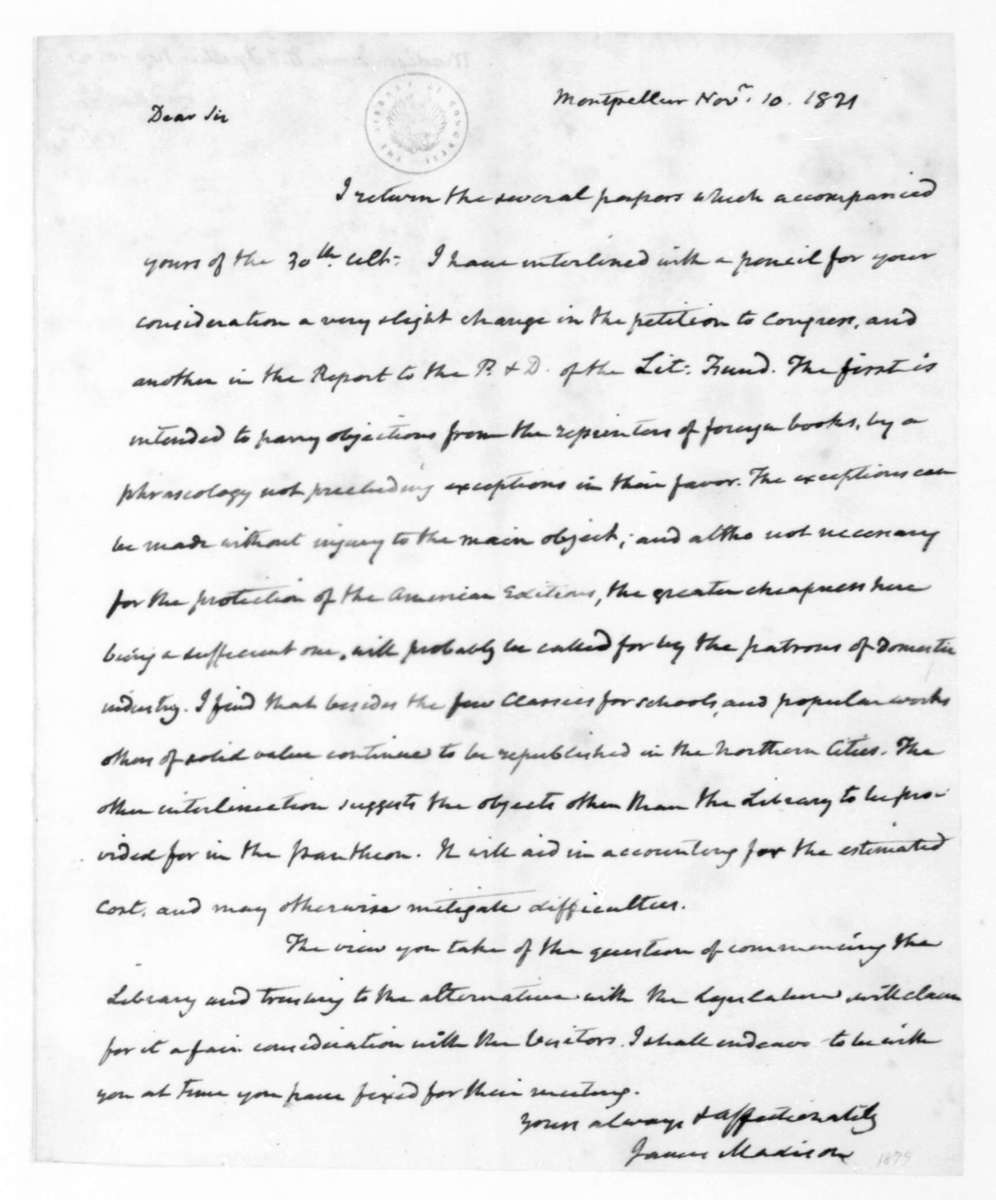 Montpellier Novr. 10. 1821
Dear Sir
I return the several papers which accompanied
yours of the 30th. ult: I have interlined with a pencil for your
consideration a very slight change in the petition to Congress, and
another in the Report to the P. & D. of the Lit: Fund. The first is
intended to parry objections from the reprinters of foreign books, by a
phraseology not precluding exceptions in their favor. The exceptions can
be made without injury to the main object; and altho not necessary
for the protection of the American Editions, the greater cheapness here
being a sufficient one, will probably be called for by the patrons of Domestic
industry. I find that besides the few Classics for schools, and popular works
others of solid value continue to be republished in the Northern Cities. The
other interlineation suggests the objects other than the Library to be pro-
vided for in the pantheon. It will aid in accounting for the estimated
Cost, and may otherwise mitigate difficulties.
The view you take of the question of commencing the
Library and trusing to the alternative with the Legislature, will claim
for it a fair consideration with the Visitors. I shall endeavr to be with
you at time you have fixed for their meeting.
Yours always & affectionately
James Madison
THE LIBRARY OF CONGRESS